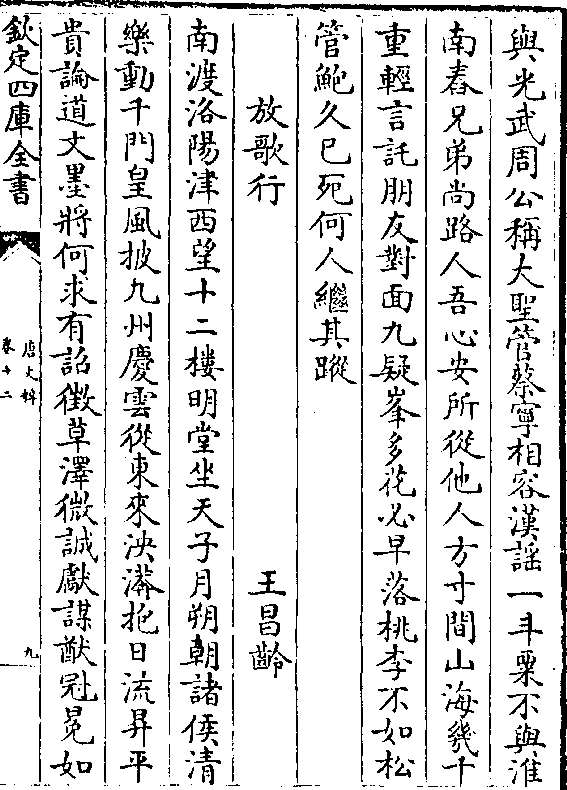 與光武周公稱大聖管蔡寧相容漢謡一斗粟不與淮
南舂兄弟尚路人吾心安所從他人方寸間山海幾千
重輕言託朋友對面九疑峯多花必早落桃李不如松
管鮑久已死何人繼其蹤
放歌行 王昌齡
南渡洛陽津西望十二樓明堂坐天子月朔朝諸侯清
樂動千門皇風披九州慶雲從東來泱漭抱日流昇平
貴論道文墨將何求有詔徵草澤微誠獻謀猷冠冕如
欽定四庫全書
唐文粹
卷十二
九